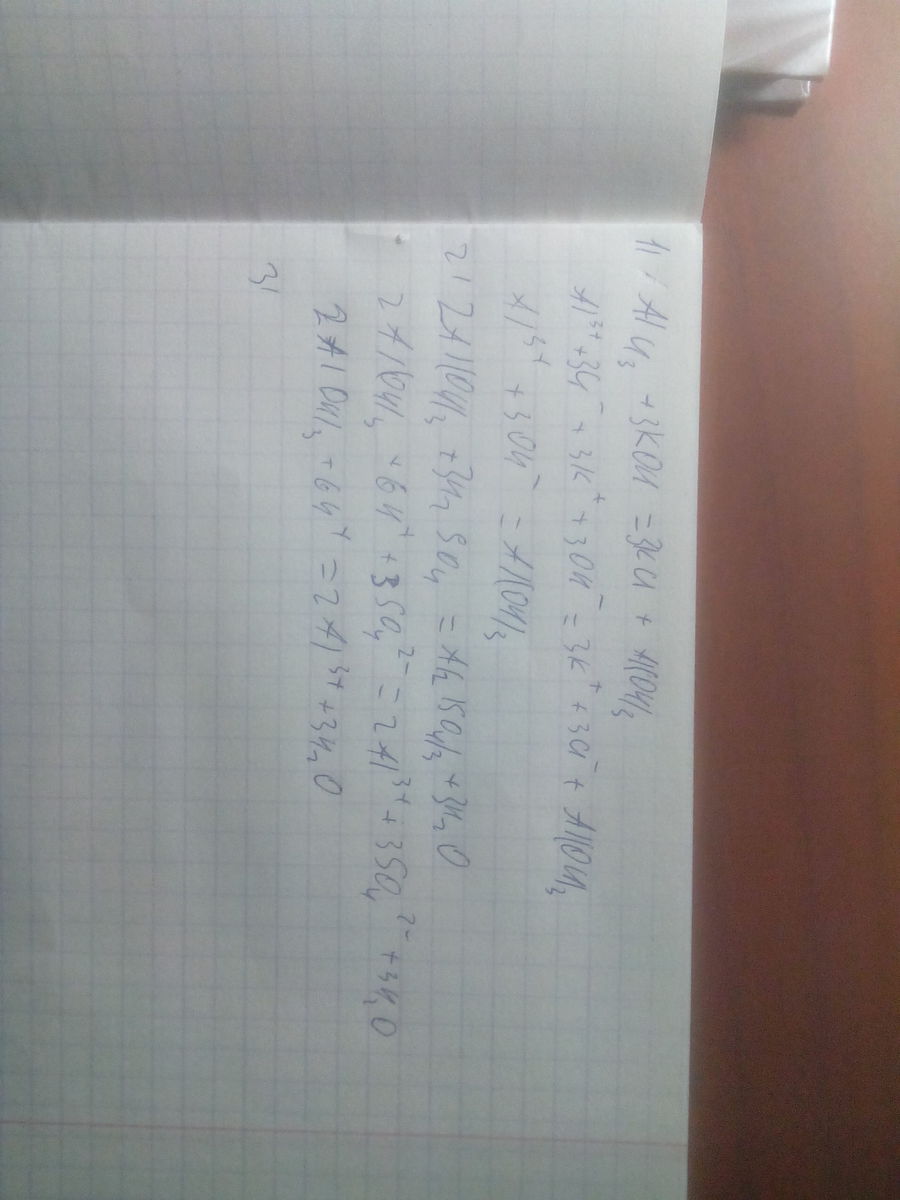 1) AlCl₃ + 3KOH = 3KCl + Al(OH)₃
Al³⁺ + 3Cl⁻ + 3K⁺ + 3OH⁻ = 3K⁺ + 3Cl⁻ + Al(OH)₃
Al³⁺ + 3OH⁻ = Al(OH)₃
2) 2Al(OH)₃ + 3H₂SO₄ = Al₂(SO₄)₃ + 3H₂O
2Al(OH)₃ + 6H⁺ + 3SO₄²⁻ = 2Al³⁺ + 3SO₄²⁻ + 3H₂O
2Al(OH)₃ + 6H⁺ = 2Al³⁺ + 3H₂O
3)